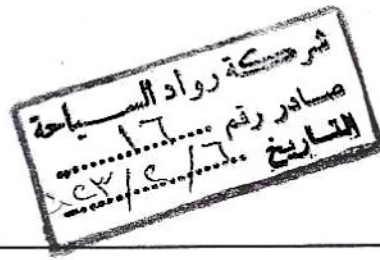 شركة رواد السياحة
صادر رقم ١٦
التاريخ ٦/٢/٢٠٢٣